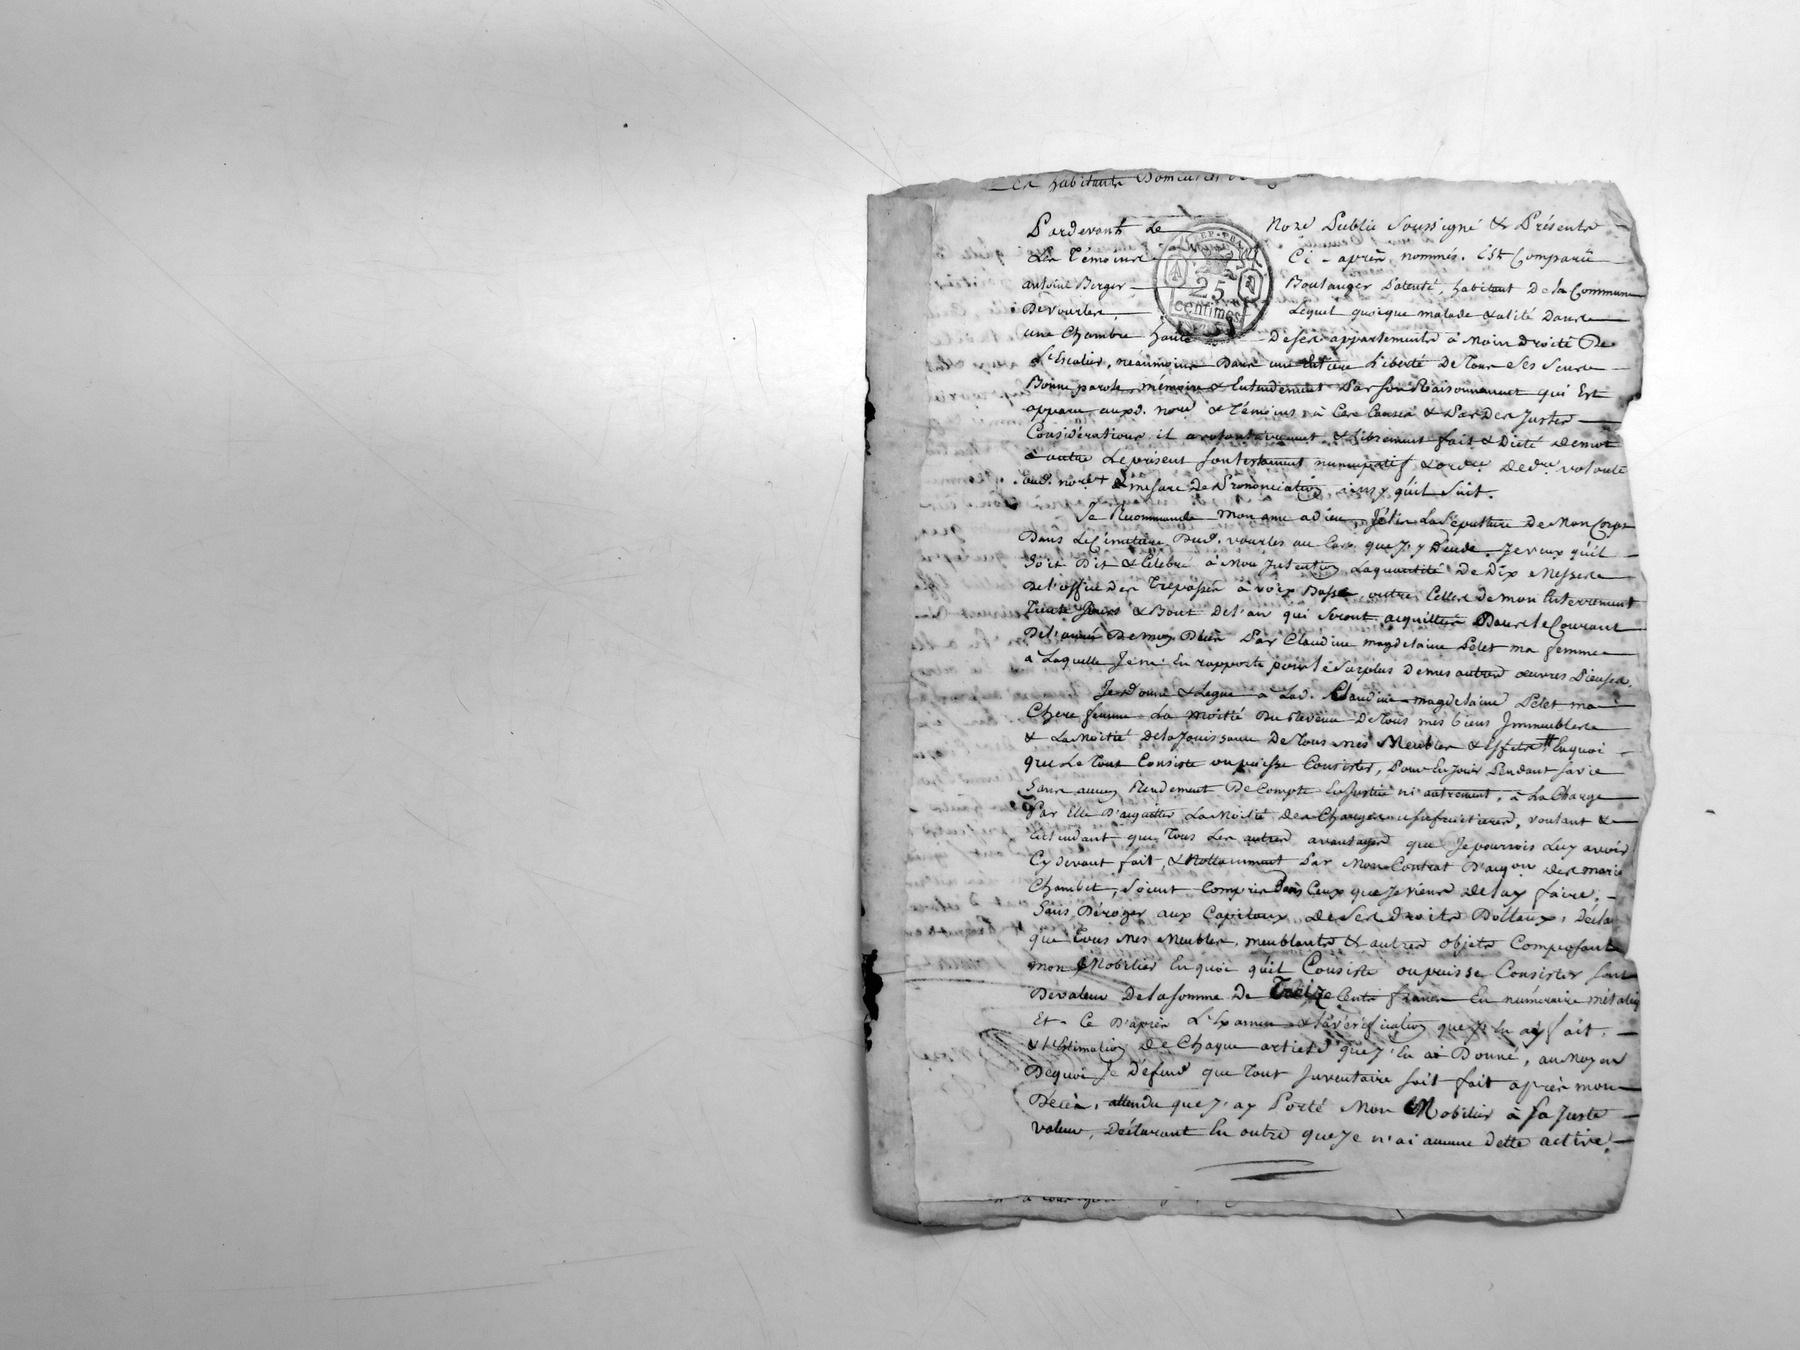 Pardevant Le Nore Public Soussigné & Présents
Les Témoins Ci-après nommés. Est Comparu
antoine Berger Boulanger Patenté, habitant De la Commune
De vourles, Lequel quoique malade & alité Dans
une Chambre haute De ses appartements à Main droite De
L'Escalier, néanmoins Dans une Entiere Liberté De Tous Ses Sens
Bonne parole, mémoire & Entendement Par son Raisonnement qui Est
apparu auxd. nore & Témoins, à Ces Causes & Par Des Justes
Considérations, il a volontairement & librement fait & Dicté de mot
à autre Le présent son testament nuncupatif & ordre de dre volonté
aud. nore & à mesure De Prononciation, ainsy qu'il Suit.
Je Recommande mon ame a dieu, J'élis La Sépulture De Mon Corps
Dans Le Cimetiere Dud. vourles au Cas que J'y Décede. Je veux qu'il
Soit Dit & Célébré à Mon Intention La quantité De Dix Messes
De l'office Des Trépassés à voix Basse, outre Celles de mon Enterrement
Trente Jours & Bout De l'an qui Seront acquittées Dans le Courant
De l'année De moy Décès Par Claudine magdelaine Pelet ma femme
à Laquelle Je m'En rapporte pour le Surplus De mes autres œuvres Pieuses.
Je Donne & Legue à Lad. Claudine magdelaine Pelet ma
Chere femme La moitié Du Revenu De Tous mes biens Immeubles
& La Moitié De la Jouissance De Tous mes Meubles & Effets # En quoi
que Le Tout Consiste ou puisse Consister, Pour En Jouir Pendant sa vie
Sans aucun Rendement De Compte En Justice ni autrement, à La Charge
Par Elle D'acquitter La Moitié Des Charges usufruitieres, voulant &
Entendant que Tous Les autres avantages que Je pourrois Luy avoir
Cy devant fait, & Nottamment Par Mon Contrat De marie
Chambet, Soient Compris Dans Ceux que Je viens de luy faire,
Sans Déroger aux Capitaux De Ses Droits Dottaux, Décla
que Tous Mes Meubles, meublants & autres objets Composant
mon Mobilier En quoi qu'il Consiste ou puisse Consister sont
De valeur De la somme De Treize Cents francs En numéraire métaliq
Et Ce D'après L'Examen & la vérification que J'En ay fait,
& l'Estimation de Chaque article que J'En ai Donné, au Moyen
De quoi Je Défend que Tout Inventaire soit fait après mon
Décès, attendu que J'ay Porté Mon Mobilier à Sa Juste
valeur, Déclarant En outre que Je n'ai aucune dette active
25
centimes